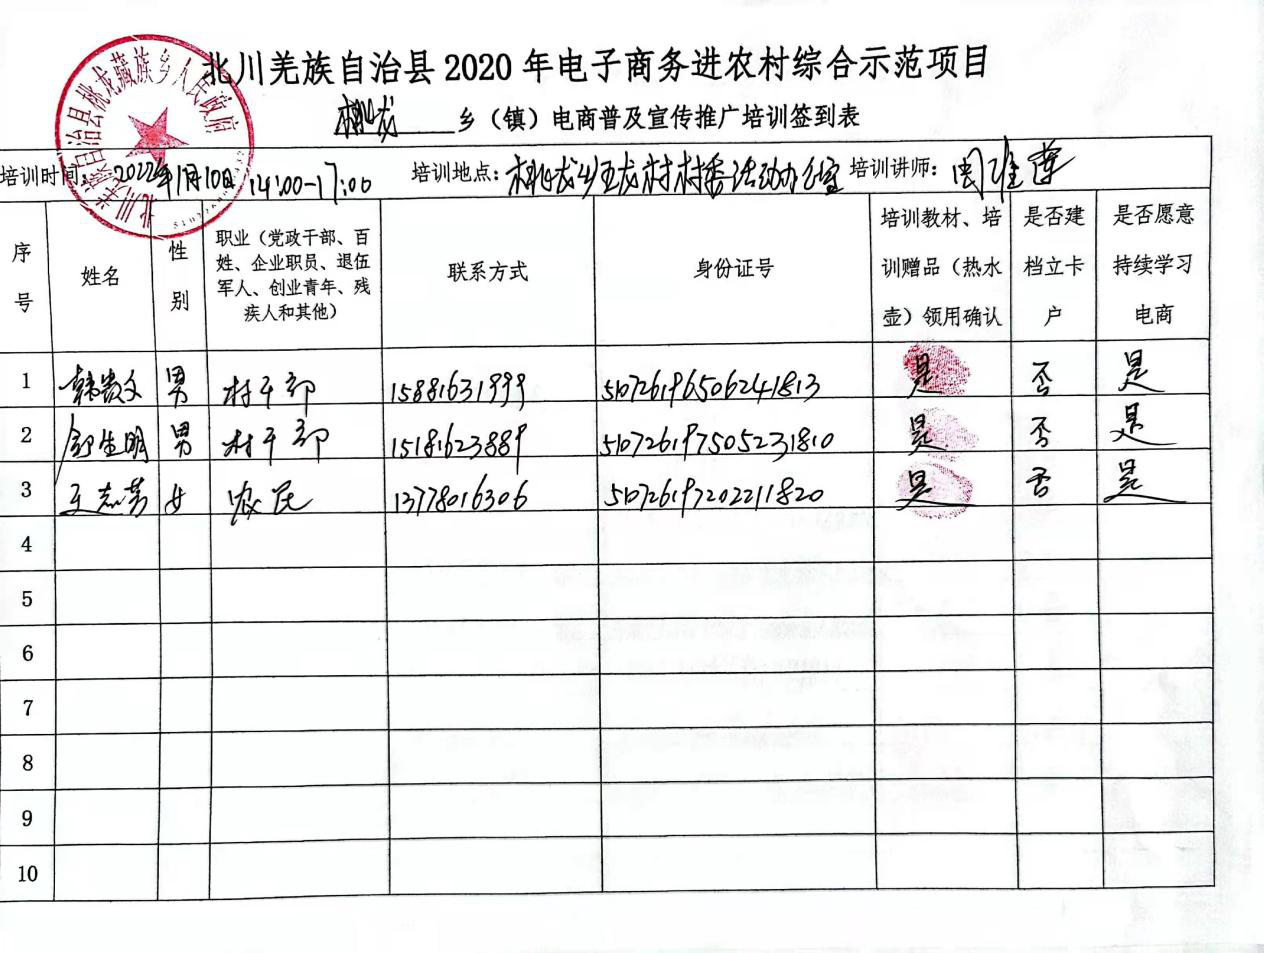 北川羌族自治县2020年电子商务进农村综合示范项目
桃龙乡（镇）电商普及宣传推广培训签到表
北川羌族自治县桃龙藏族乡人民政府
培训时间：2022年1月10日 14:00-17:00 培训地点：桃龙乡 龙村村委活动办公室 培训讲师：
序号 姓名 性别 职业（党政干部、百姓、企业职员、退伍军人、创业青年、残疾人和其他） 联系方式 身份证号 培训教材、培训赠品（热水壶）领用确认 是否建档立卡户 是否愿意持续学习电商
1 韩贵文 男 村干部 15881631999 510726196506241813 是 否 是
2 舒生明 男 村干部 15181623889 510726197505231810 是 否 是
3 王志芳 女 农民 13778016306 510726197202211820 是 否 是
4
5
6
7
8
9
10